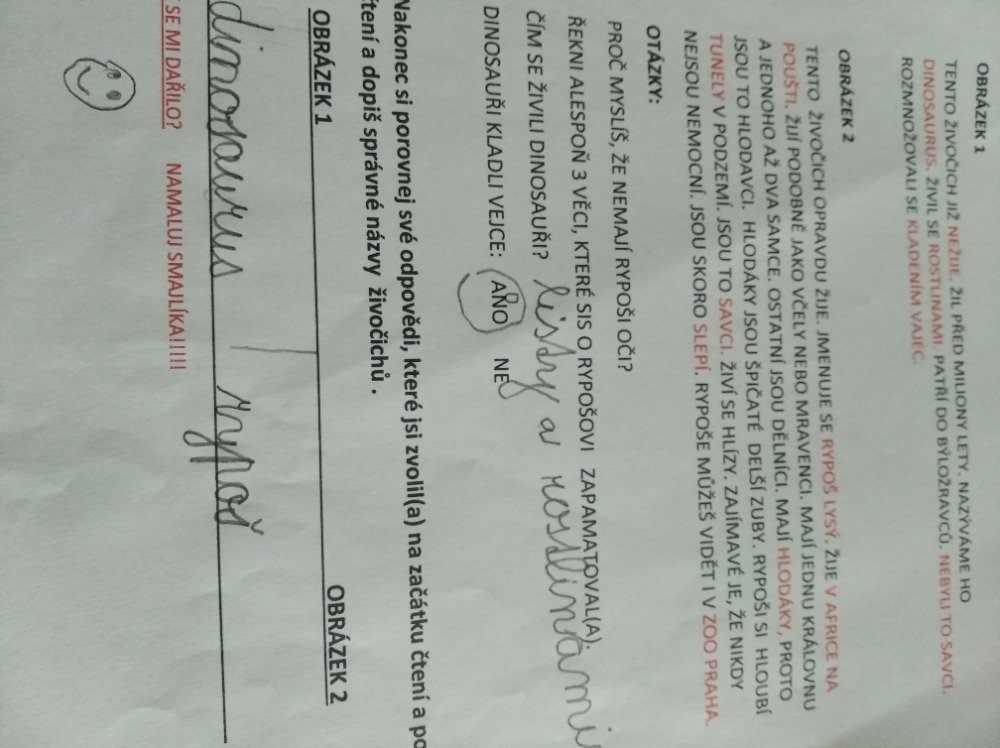 OBRÁZEK 1
TENTO ŽIVOČICH JIŽ NEŽIJE. ŽIL PŘED MILIONY LETY. NAZÝVÁME HO
DINOSAURUS. ŽIVIL SE ROSTLINAMI. PATŘÍ DO BÝLOŽRAVCŮ. NEBYLI TO SAVCI.
ROZMNOŽOVALI SE KLADENÍM VAJEC.
OBRÁZEK 2
TENTO ŽIVOČICH OPRAVDU ŽIJE. JMENUJE SE RYPOŠ LYSÝ. ŽIJE V AFRICE NA
POUŠTI. ŽIJÍ PODOBNĚ JAKO VČELY NEBO MRAVENCI. MAJÍ JEDNU KRÁLOVNU
A JEDNOHO AŽ DVA SAMCE. OSTATNÍ JSOU DĚLNÍCI. MAJÍ HLODÁKY, PROTO
JSOU TO HLODAVCI. HLODÁKY JSOU ŠPIČATÉ DELŠÍ ZUBY. RYPOŠI SI HLOUBÍ
TUNELY V PODZEMÍ. JSOU TO SAVCI. ŽIVÍ SE HLÍZY. ZAJÍMAVÉ JE, ŽE NIKDY
NEJSOU NEMOCNÍ. JSOU SKORO SLEPÍ. RYPOŠE MŮŽEŠ VIDĚT I V ZOO PRAHA.
OTÁZKY:
PROČ MYSLÍŠ, ŽE NEMAJÍ RYPOŠI OČI?
ŘEKNI ALESPOŇ 3 VĚCI, KTERÉ SIS O RYPOŠOVI ZAPAMATOVAL(A).
ČÍM SE ŽIVILI DINOSAUŘI? listy a rostlinami
DINOSAUŘI KLADLI VEJCE: ANO NE
Nakonec si porovnej své odpovědi, které jsi zvolil(a) na začátku čtení a po
čtení a dopiš správné názvy živočichů .
OBRÁZEK 1 OBRÁZEK 2
dinosaurus rypoš
SE MI DAŘILO? NAMALUJ SMAJLÍKA!!!!!